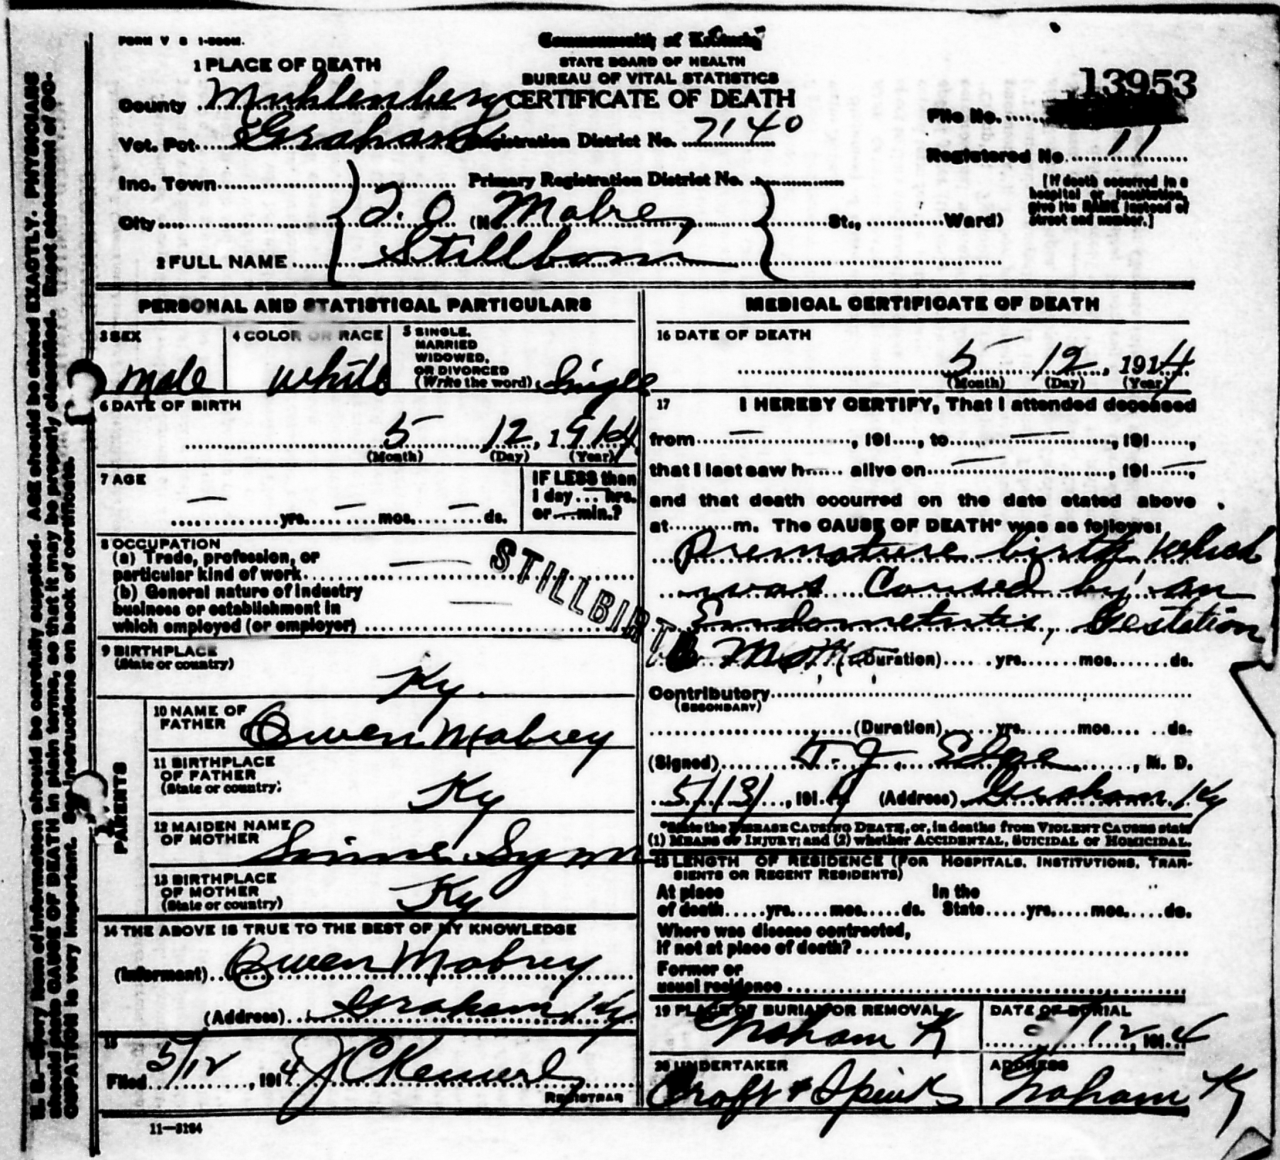 FORM V S 1-500M.
Commonwealth of Kentucky
STATE BOARD OF HEALTH
BUREAU OF VITAL STATISTICS
CERTIFICATE OF DEATH
1 PLACE OF DEATH
County Muhlenberg
Vot. Pct. Graham Registration District No. 7140
File No. 13953
Registered No. 11
Inc. Town Primary Registration District No.
City (No. Mabrey St., Ward)
[If death occurred in a hospital or institution, give its NAME instead of street and number.]
2 FULL NAME Stillborn
PERSONAL AND STATISTICAL PARTICULARS
3 SEX male
4 COLOR OR RACE white
5 SINGLE, MARRIED WIDOWED, OR DIVORCED (Write the word) Single
6 DATE OF BIRTH
5 12, 1914
(Month) (Day) (Year)
7 AGE
— yrs. — mos. — ds.
IF LESS than 1 day ... hrs. or — min.?
8 OCCUPATION
(a) Trade, profession, or
particular kind of work —
(b) General nature of industry
business or establishment in
which employed (or employer) —
STILLBIRTH
9 BIRTHPLACE
(State or country) Ky.
PARENTS
10 NAME OF FATHER Owen Mabrey
11 BIRTHPLACE OF FATHER (State or country) Ky
12 MAIDEN NAME OF MOTHER
13 BIRTHPLACE OF MOTHER (State or country) Ky
14 THE ABOVE IS TRUE TO THE BEST OF MY KNOWLEDGE
(Informant) Owen Mabrey
(Address) Graham, Ky
15
Filed 5/12, 1914 REGISTRAR
11—3184
MEDICAL CERTIFICATE OF DEATH
16 DATE OF DEATH
5 12, 1914
(Month) (Day) (Year)
17 I HEREBY CERTIFY, That I attended deceased
from —, 191..., to —, 191...,
that I last saw h... alive on —, 191 —,
and that death occurred on the date stated above
at ... m. The CAUSE OF DEATH* was as follows:
Premature birth which
was Caused by an
Endometritis, Gestation
(Duration) yrs. mos. ds.
Contributory
(SECONDARY)
(Duration) yrs. mos. ds.
(Signed) , M. D.
5/13/, 1914 (Address) Graham Ky
*State the DISEASE CAUSING DEATH, or, in deaths from VIOLENT CAUSES state
(1) MEANS OF INJURY; and (2) whether ACCIDENTAL, SUICIDAL or HOMICIDAL.
18 LENGTH OF RESIDENCE (FOR HOSPITALS, INSTITUTIONS, TRANSIENTS OR RECENT RESIDENTS)
At place of death yrs. mos. ds. In the State yrs. mos. ds.
Where was disease contracted,
If not at place of death?
Former or
usual residence
19 PLACE OF BURIAL OR REMOVAL Graham K
DATE OF BURIAL 5/12, 1914
20 UNDERTAKER
ADDRESS Graham Ky
N. B.—Every item of information should be carefully supplied. AGE should be stated EXACTLY. PHYSICIANS
should state CAUSE OF DEATH in plain terms, so that it may be properly classified. Exact statement of OC-
CUPATION is very important. See instructions on back of certificate.